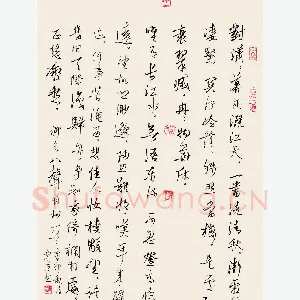 對瀟瀟暮雨灑江天一番洗清秋漸霜風
淒緊關河冷落殘照當樓是處紅
衰翠減苒苒物華休
惟有長江水無語東流不忍登高臨
遠望故鄉渺邈歸思難收嘆年來蹤
跡何事苦淹留想佳人妝樓顒望誤
幾回天際識歸舟爭知我倚闌干處
正恁凝愁 柳永八聲甘州
Shufawang.cn